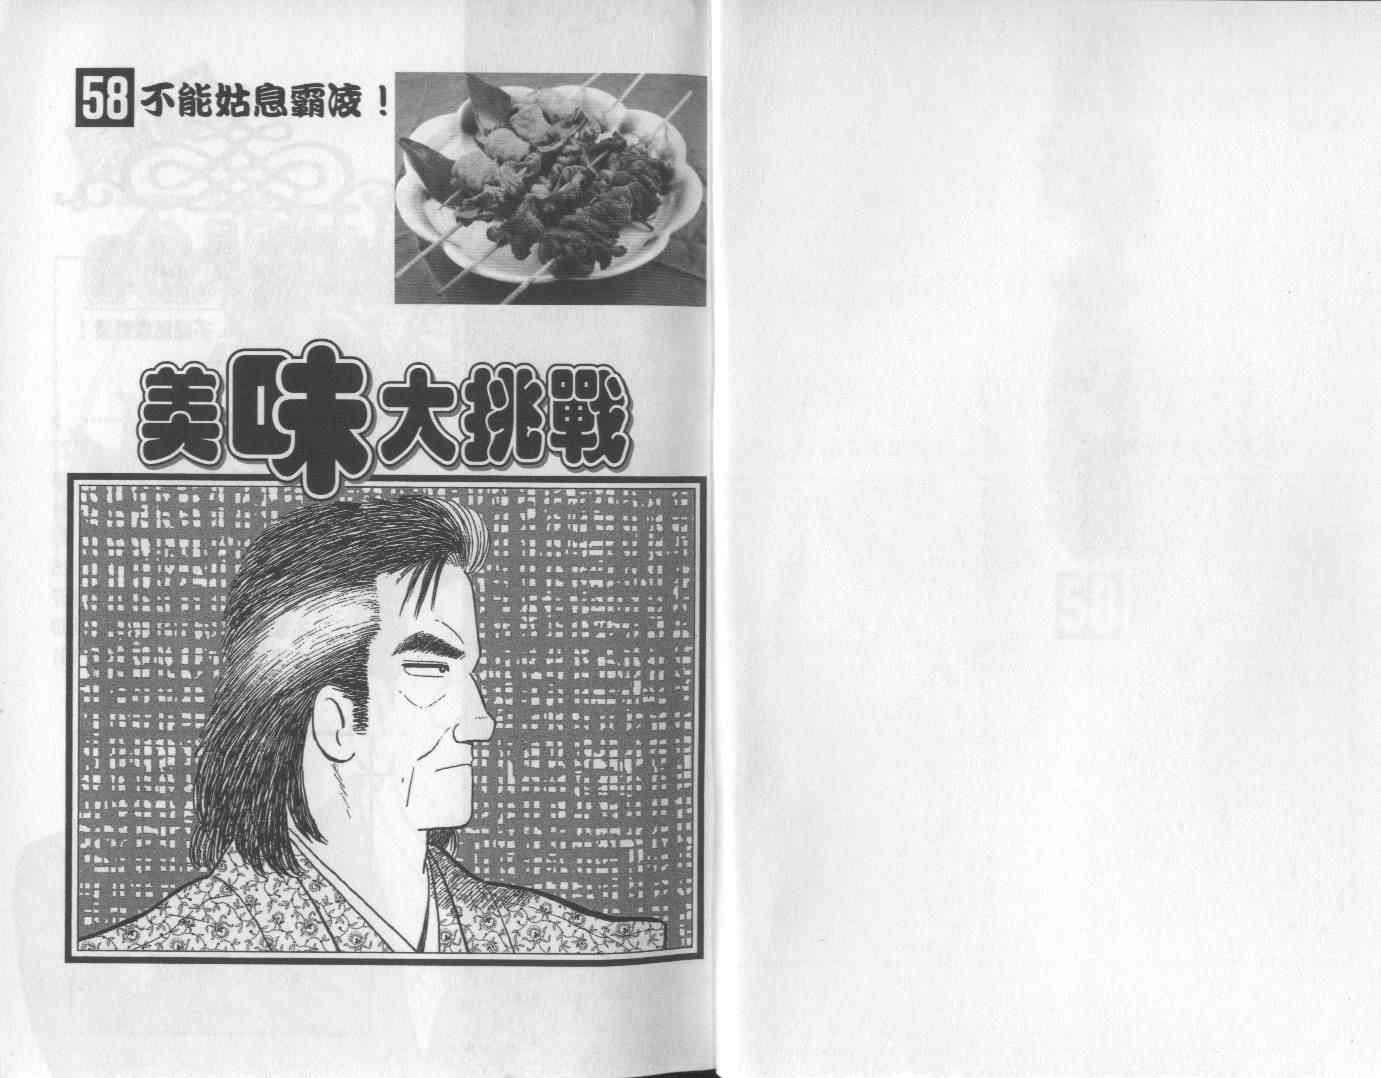 58 不能姑息霸凌！
美味大挑戰